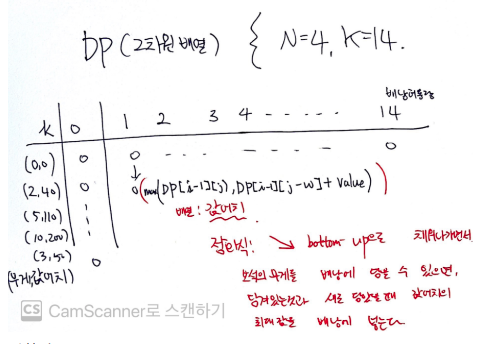 DP (2차원 배열) { N=4, K=14.
배낭허용량
K 0 1 2 3 4 - - - - - - 14
(0,0) 0 0 - - - - - - 0
(2,40) 0 0 (max(DP[i-1][j], DP[i-1][j-w]+ Value)
(5,110) 배열 : 값어치
(10,200) 점화식: ↘ bottom up으로 채워나가면서
(3,50) 0 보석의 무게를 배낭에 담을 수 있으면,
(무게,값어치) 담겨있는것과 새로 담았을때 값어치의
최대값을 배낭에 넣는다.
CS CamScanner로 스캔하기